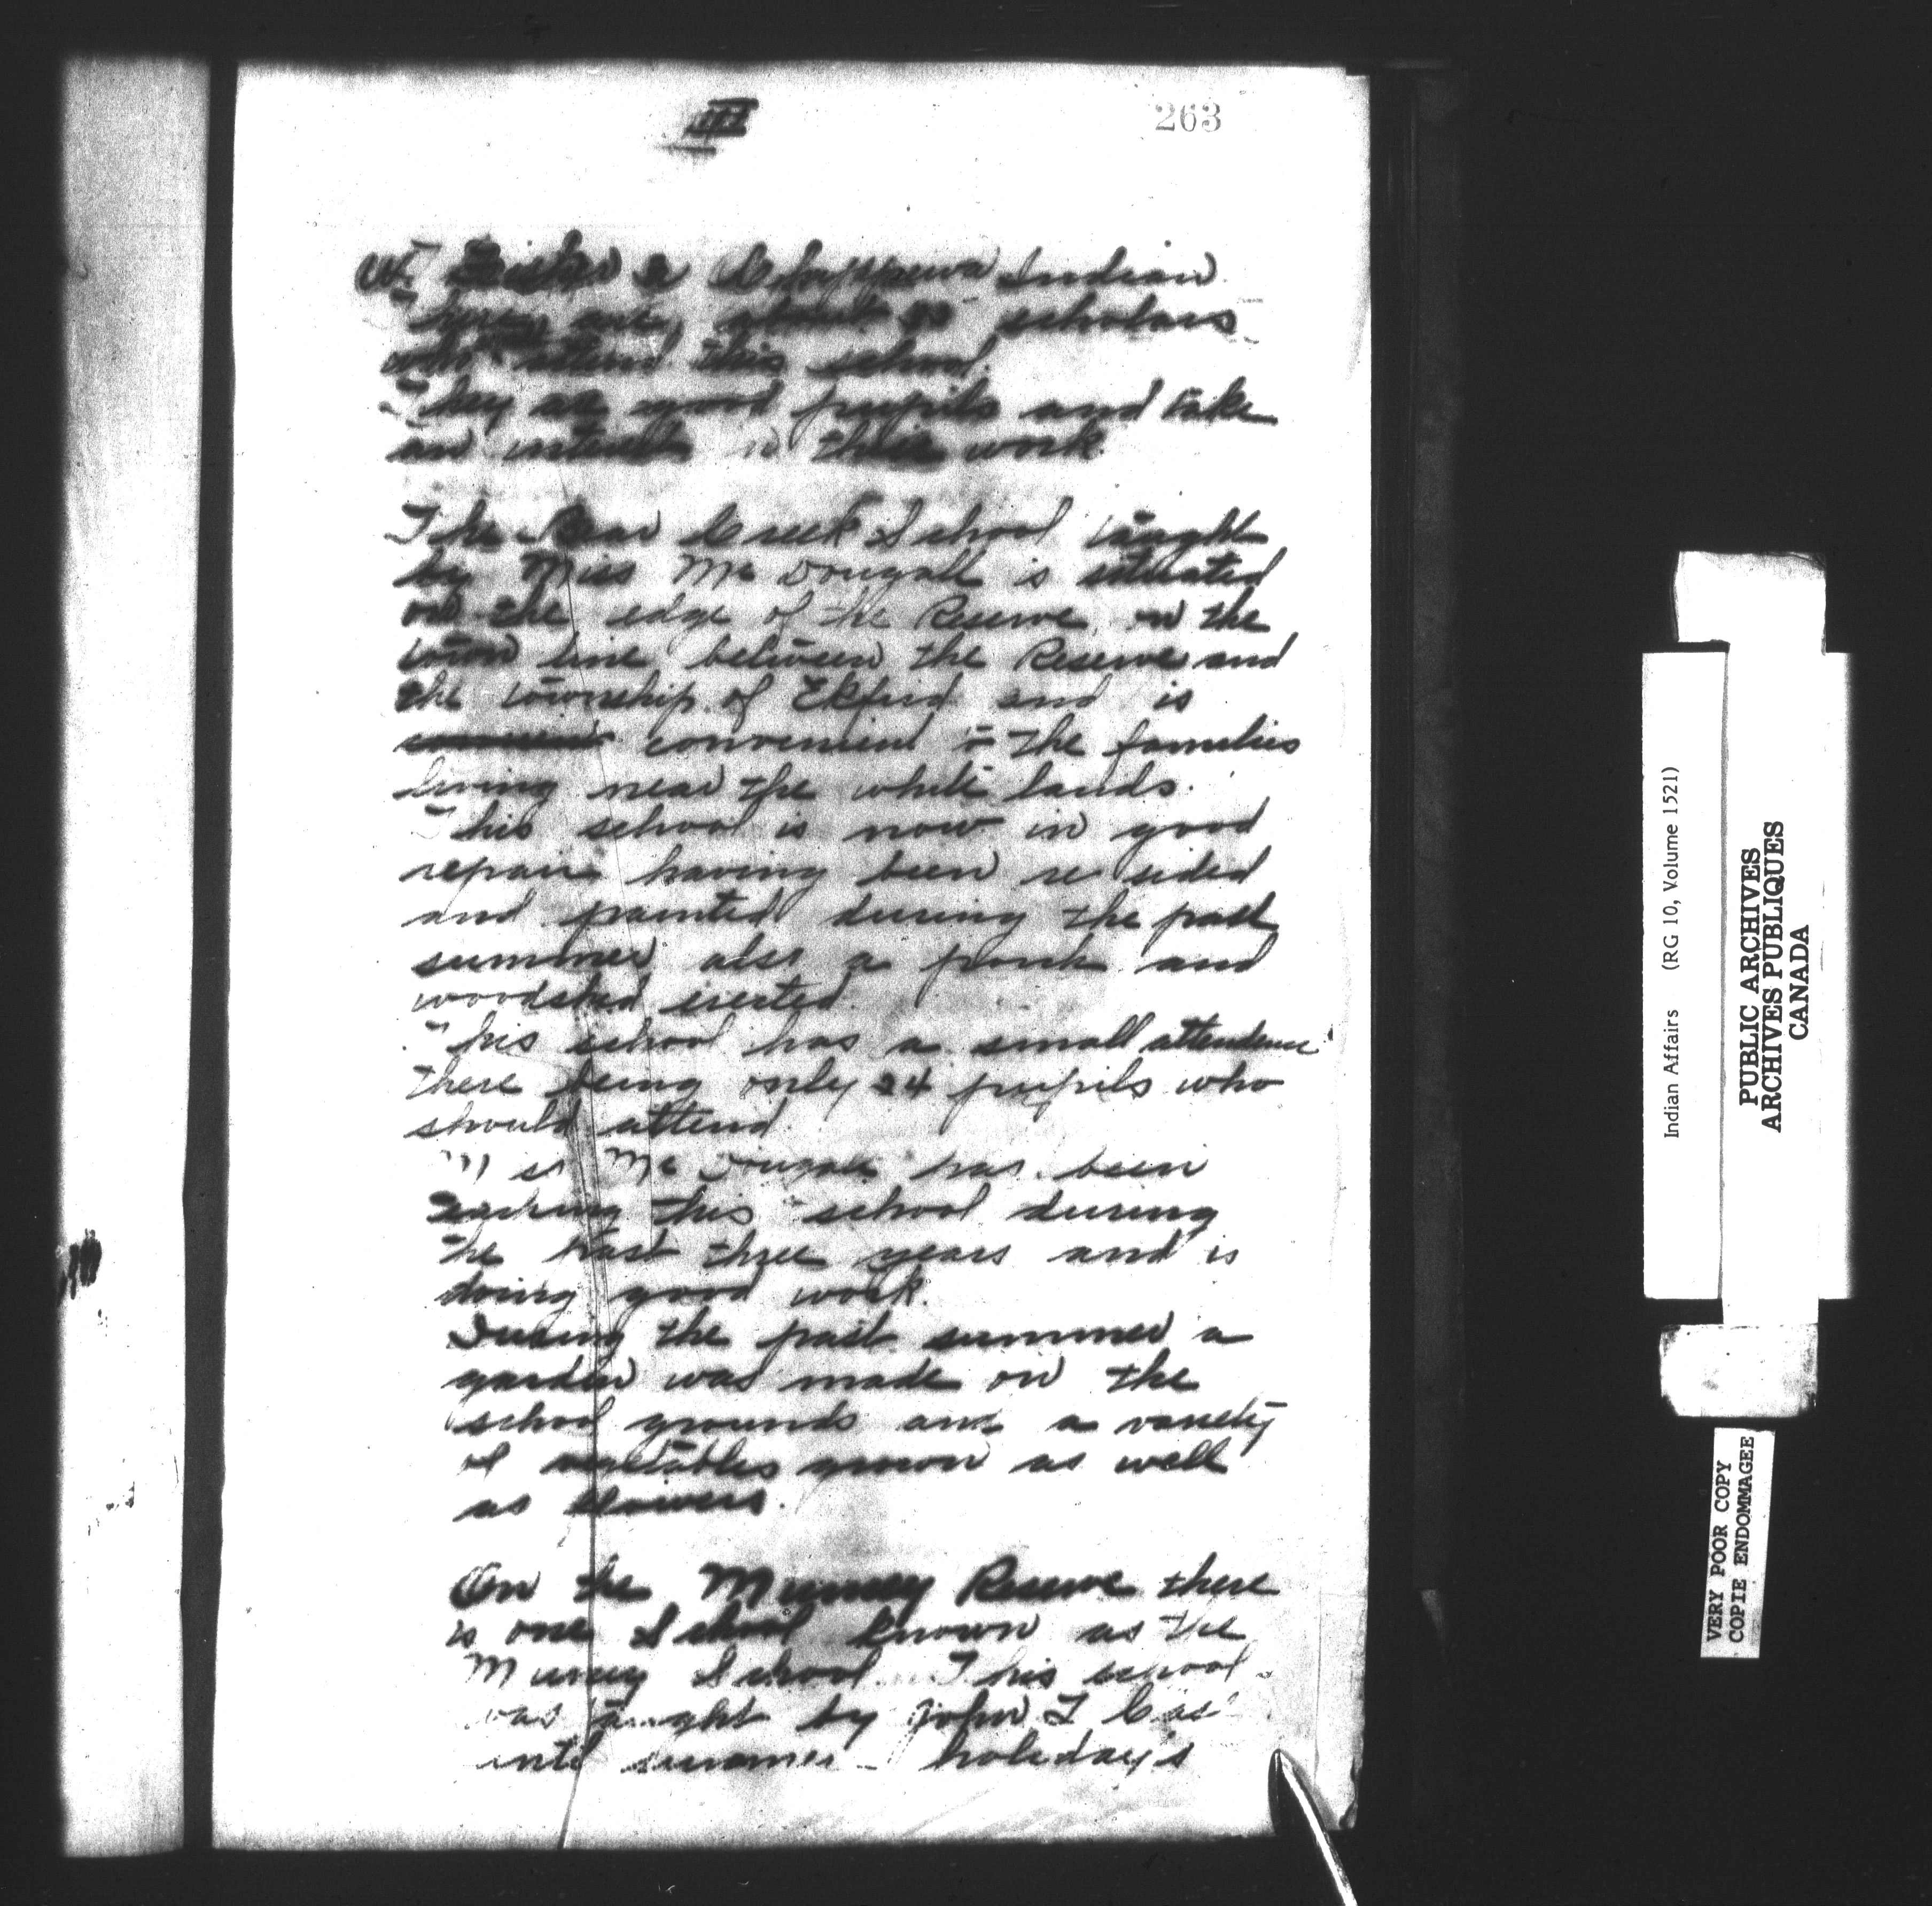 III
263
W. Fisher a Chippewa Indian
There are about scholars
who attend this school.
They are good pupils and take
an interest in their work.
The Bear Creek School taught
by Miss McDougall is situated
on the edge of the Reserve on the
town line between the Reserve and
the township of Ekfrid and is
convenient to the families
living near the white lands.
This school is now in good
repair having been re sided
and painted during the past
summer also a porch and
woodshed erected.
This school has a small attendance
there being only 24 pupils who
should attend.
Miss McDougall has been
teaching this school during
the past three years and is
doing good work.
During the past summer a
garden was made on the
school grounds and a variety
of vegetables grown as well
as flowers.
On the Muncey Reserve there
is one School known as the
Muncey School. This school
was taught by John T Case
until summer holidays
Indian Affairs (RG 10, Volume 1521)
PUBLIC ARCHIVES
ARCHIVES PUBLIQUES
CANADA
VERY POOR COPY
COPIE ENDOMMAGEE